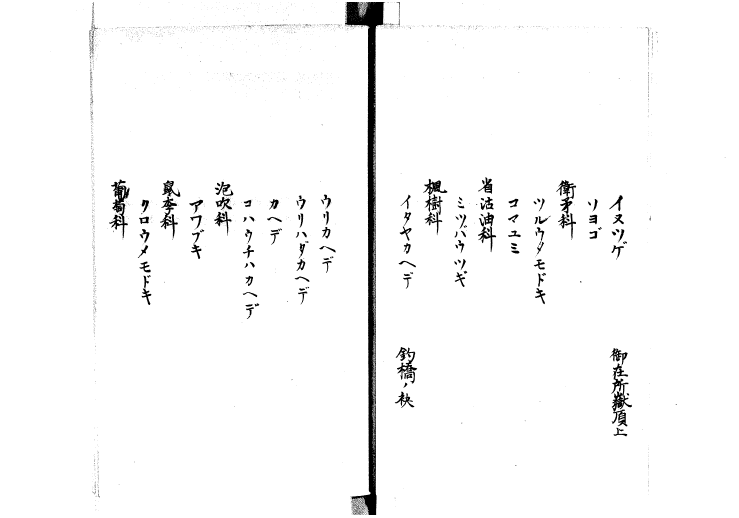 イヌツゲ 御在所嶽頂上
ソヨゴ
衛矛科
ツルウメモドキ
コマユミ
省沽油科
ミツバウツギ
楓樹科
イタヤカヘデ 釣橋ノ袂
ウリカヘデ
ウリハダカヘデ
カヘデ
コハウチハカヘデ
泡吹科
アワブキ
鼠李科
クロウメモドキ
葡萄科